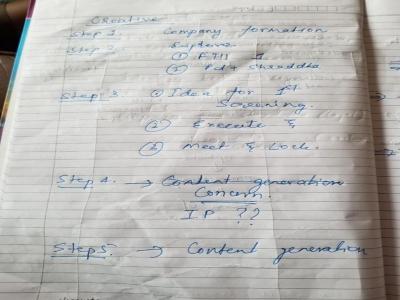 Creative
Step 1. Company formation
Step 2.
①
② + Shraddha
Step 3 ① Idea for 1st
Screening.
② Execute &
③ Meet & Lock.
Step 4. → Content generation
Concern.
IP ??
Step 5. → Content generation